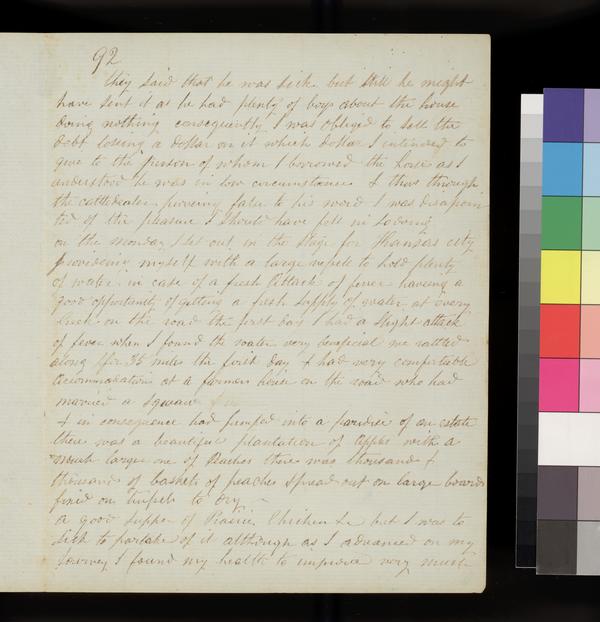 92
they said that he was sick but still he might
have sent it as he had plenty of boys about the house
doing nothing consequently I was obliged to sell the
debt losing a dollar on it which dollar I intended to
give to the person of whom I borrowed the horse as I
understood he was in low circumstances & thus through
the cattledealer proveing false to his word I was disapoin
ted of the pleasure I should have felt in
on the monday I set out in the stage for Kansas city
provideing myself with a large vessle to hold plenty
of water in case of a fresh attack of fever haveing a
good opportunity of getting a fresh supply of water at every
on the road the first day I had a slight attack
of fever when I found the water very beneficial we rattled
along for 35 miles the first day & had very comfortable
accommodations at a farmers house on the road who had
married a squaw
& in consequence had jumped into a paridise of an estate
there was a beautiful plantation of apples with a
much larger one of Peaches there was thousands &
thousands of baskets of peaches spread out on large boards
fixed on to dry
a good supper of Prairie Chicken &c but I was to
sick to partake of it although as I advanced on my
Journey I found my health to improve very much